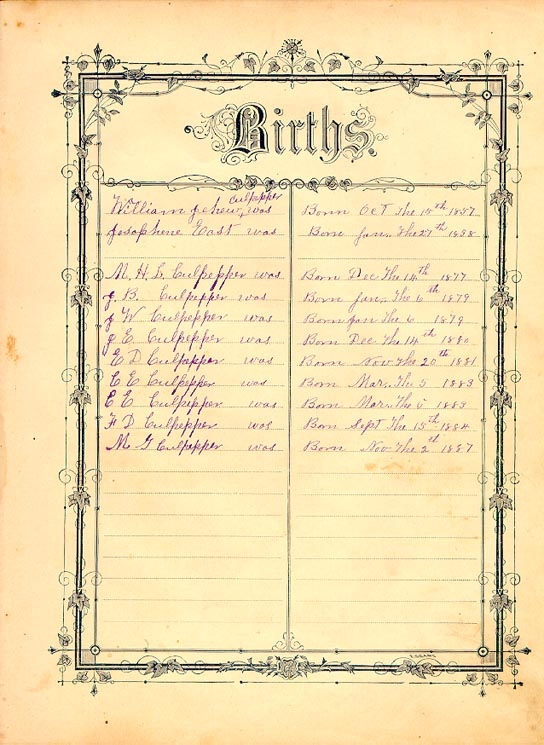 Births.
culpepper
William Jehew, was Born Oct The 15th 1857
Josaphine East was Born Jan, The 27th 1858
M. H. L. Culpepper was Born Dec The 14th 1877
J B. Culpepper was Born Jan, The 6th 1879
J W Culpepper was Born Jan The 6 1879
J E. Culpepper was Born Dec The 14th 1880
E D Culpepper was Born Nov The 20th 1881
C E Culpepper was Born Mar, The 5 1883
E E. Culpepper was Born Mar, The 5 1883
F D Culpepper was Born Sept The 15th 1884
M G Culpepper was Born Nov The 2th 1887